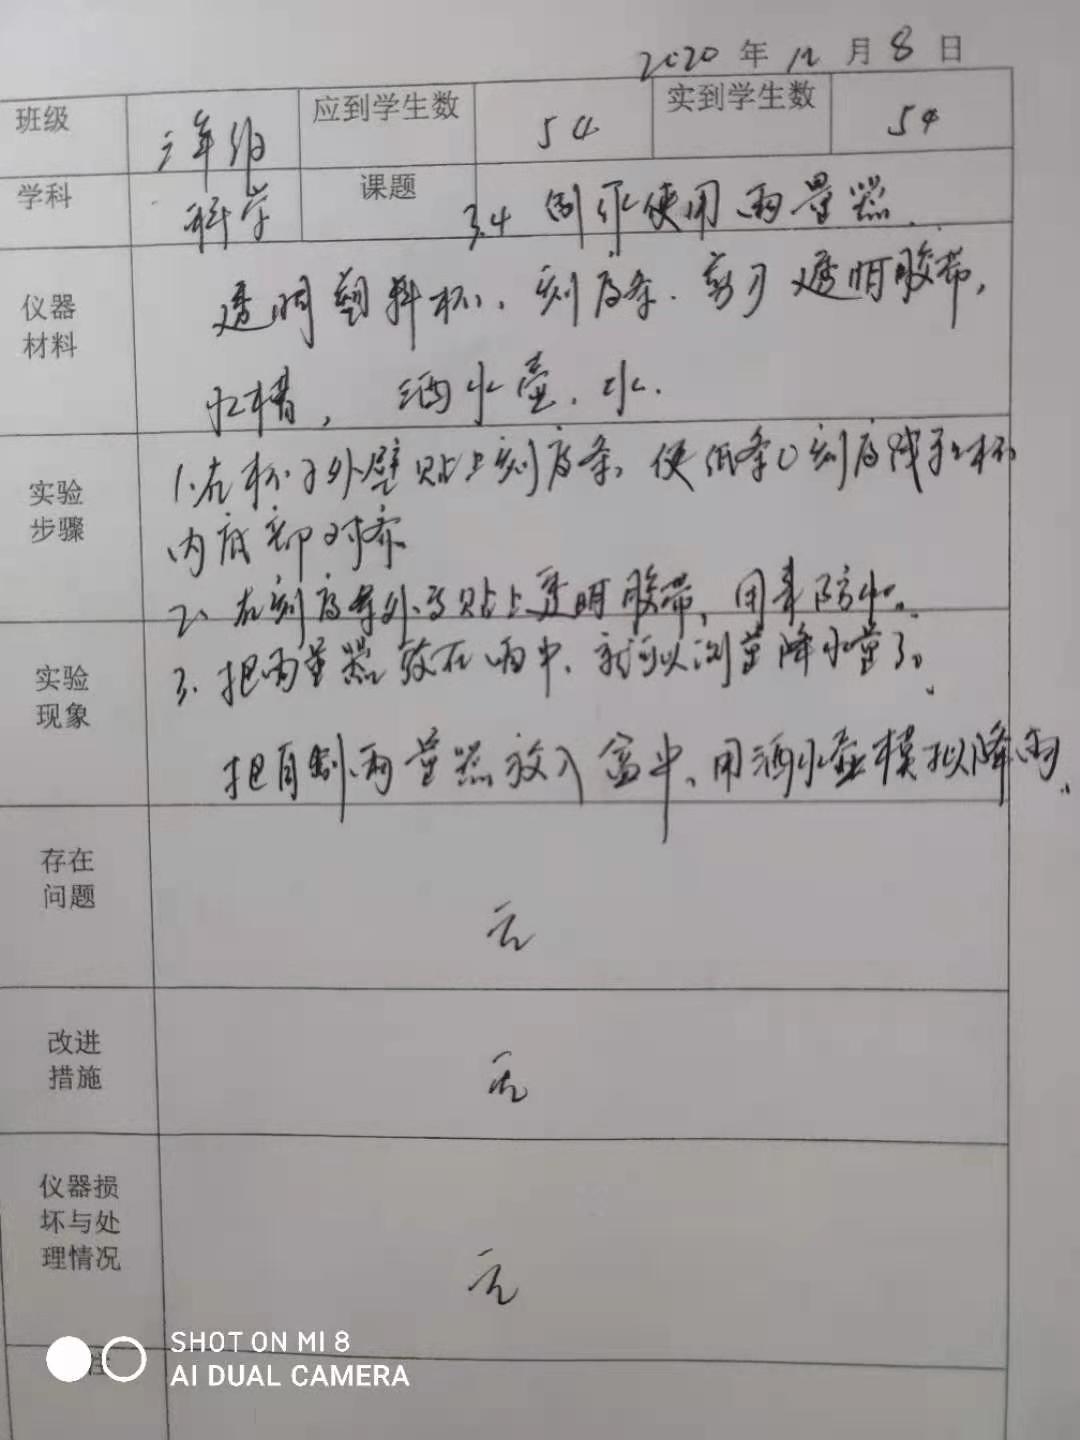 2020 年 12 月 8 日
班级 三年级 应到学生数 54 实到学生数 54
学科 科学 课题 3.4 制作使用雨量器
仪器
材料
透明塑料杯、刻度条、剪刀、透明胶带,
水槽, 洒水壶、水.
实验
步骤
1.在杯子外壁贴上刻度条,使纸条0刻度线和杯
内底部对齐
2、在刻度条外面贴上透明胶带,用来防水。
实验
现象
3.把雨量器放在雨中,就可以测量降水量了。
把自制雨量器放入盆中、用洒水壶模拟降雨.
存在
问题
无
改进
措施
无
仪器损
坏与处
理情况
无
注
SHOT ON MI 8
AI DUAL CAMERA